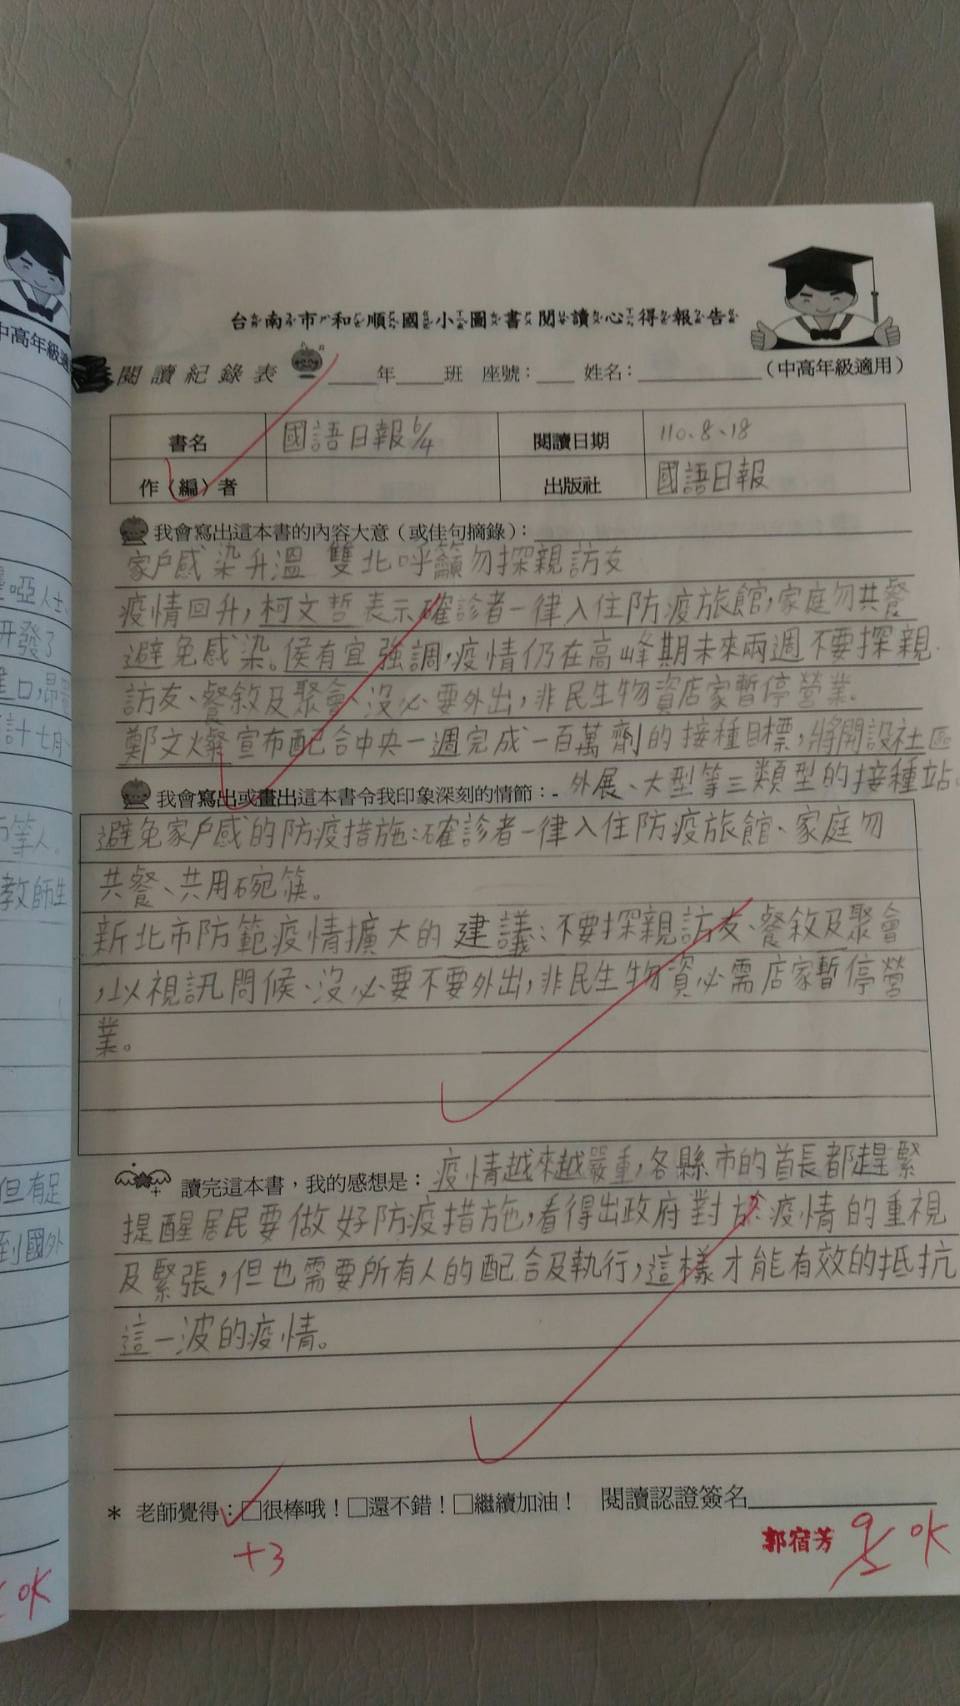 中高年級適
啞人士
開發了
進口,
計七月
等人。
教師生
但有足
到國外
OK
台南市和順國小圖書閱讀心得報告
閱讀紀錄表 ____年____班 座號:___ 姓名:__________ (中高年級適用)
書名 國語日報6/4 閱讀日期 110.8.18
作(編)者 出版社 國語日報
我會寫出這本書的內容大意(或佳句摘錄):
家戶感染升溫 雙北呼籲勿探親訪友
疫情回升,柯文哲表示確診者一律入住防疫旅館,家庭勿共餐
避免感染。侯有宜強調,疫情仍在高峰期未來兩週不要探親
訪友、餐敘及聚會、沒必要外出,非民生物資店家暫停營業.
鄭文燦宣布配合中央一週完成一百萬劑的接種目標,將開設社區
外展、大型等三類型的接種站.
我會寫出或畫出這本書令我印象深刻的情節:
避免家戶感的防疫措施:確診者一律入住防疫旅館、家庭勿
共餐、共用碗筷。
新北市防範疫情擴大的建議:不要探親訪友、餐敘及聚會
,以視訊問候、沒必要不要外出,非民生物資必需店家暫停營
業。
讀完這本書,我的感想是:疫情越來越嚴重,各縣市的首長都趕緊
提醒居民要做好防疫措施,看得出政府對於疫情的重視
及緊張,但也需要所有人的配合及執行,這樣才能有效的抵抗
這一波的疫情。
* 老師覺得:□很棒哦!□還不錯!□繼續加油! 閱讀認證簽名
+3 郭宿芳 9/2 OK